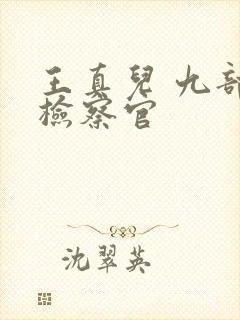 王真兒 九部
檢察官
沈翠英